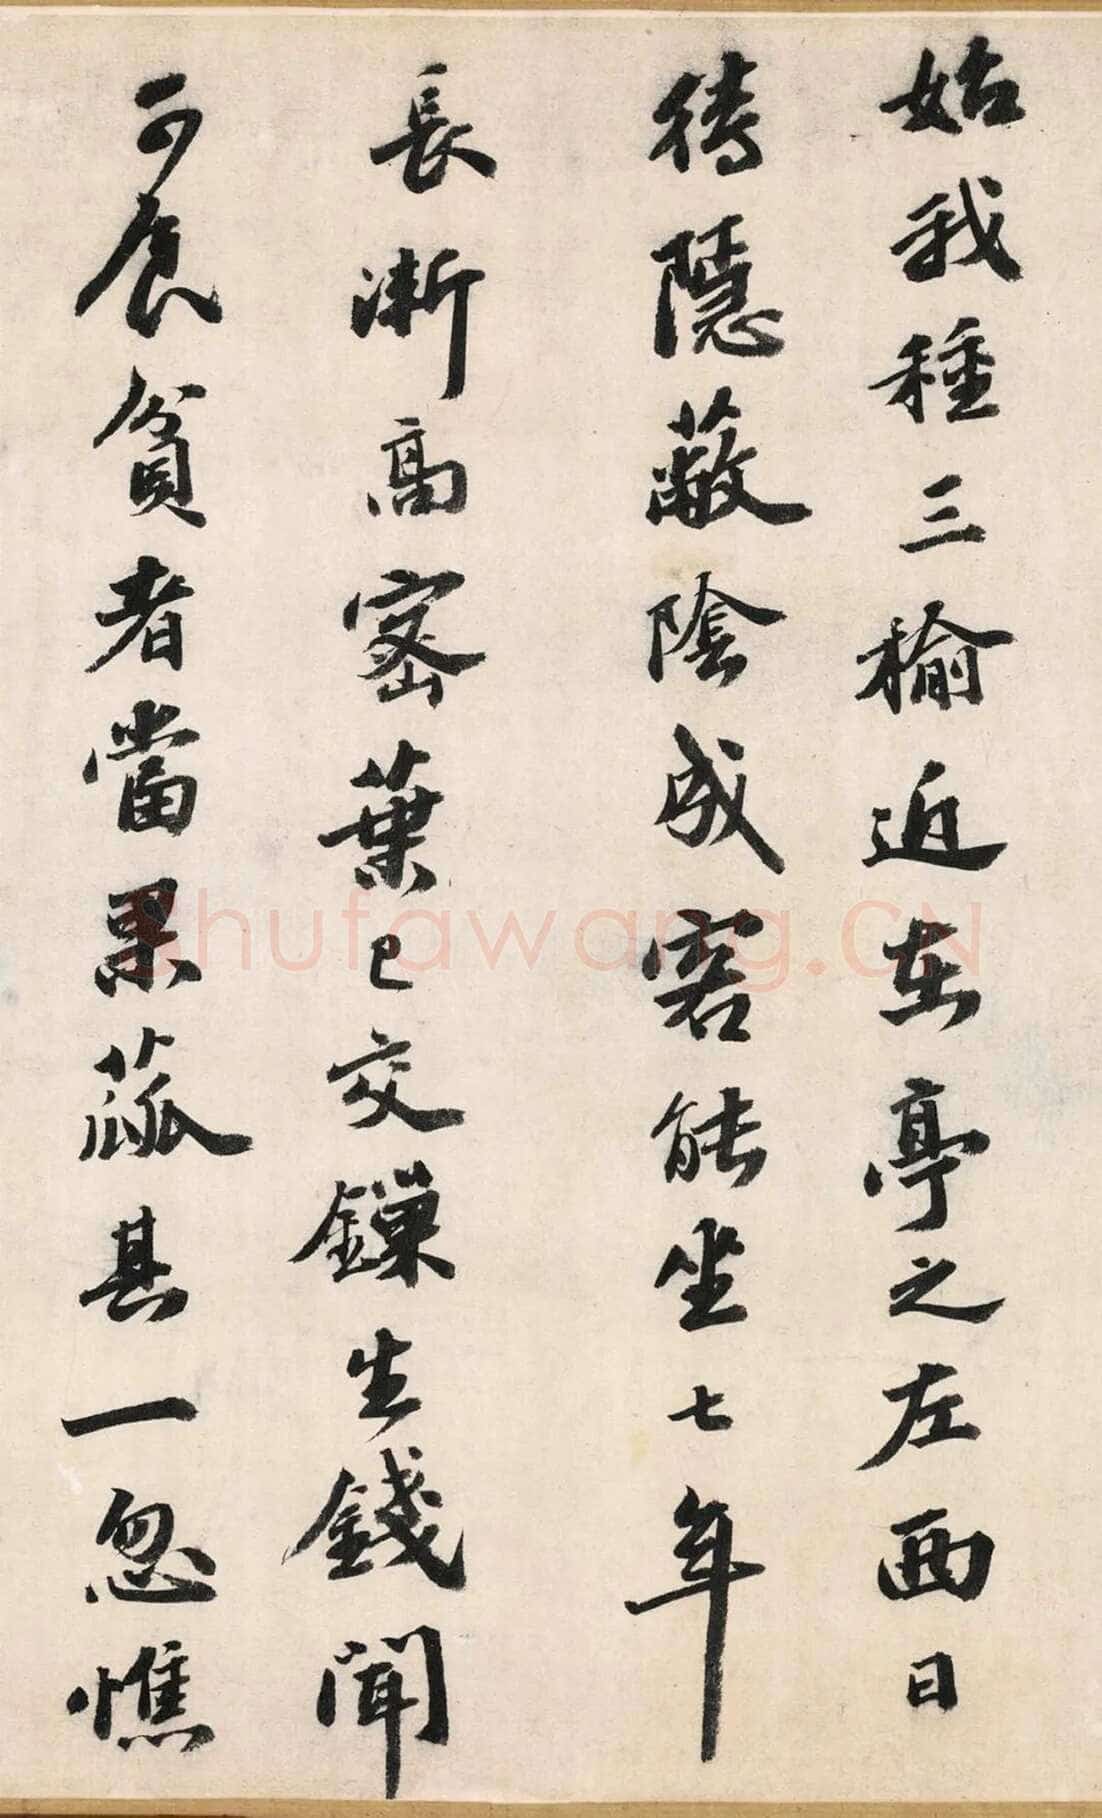 始我種三榆近在亭之左西日
待隱蔽陰成客能坐七年
長漸高密葉已交鏁生錢聞
可食貧者當果蓏甚一忽憔
Shufawang.CN